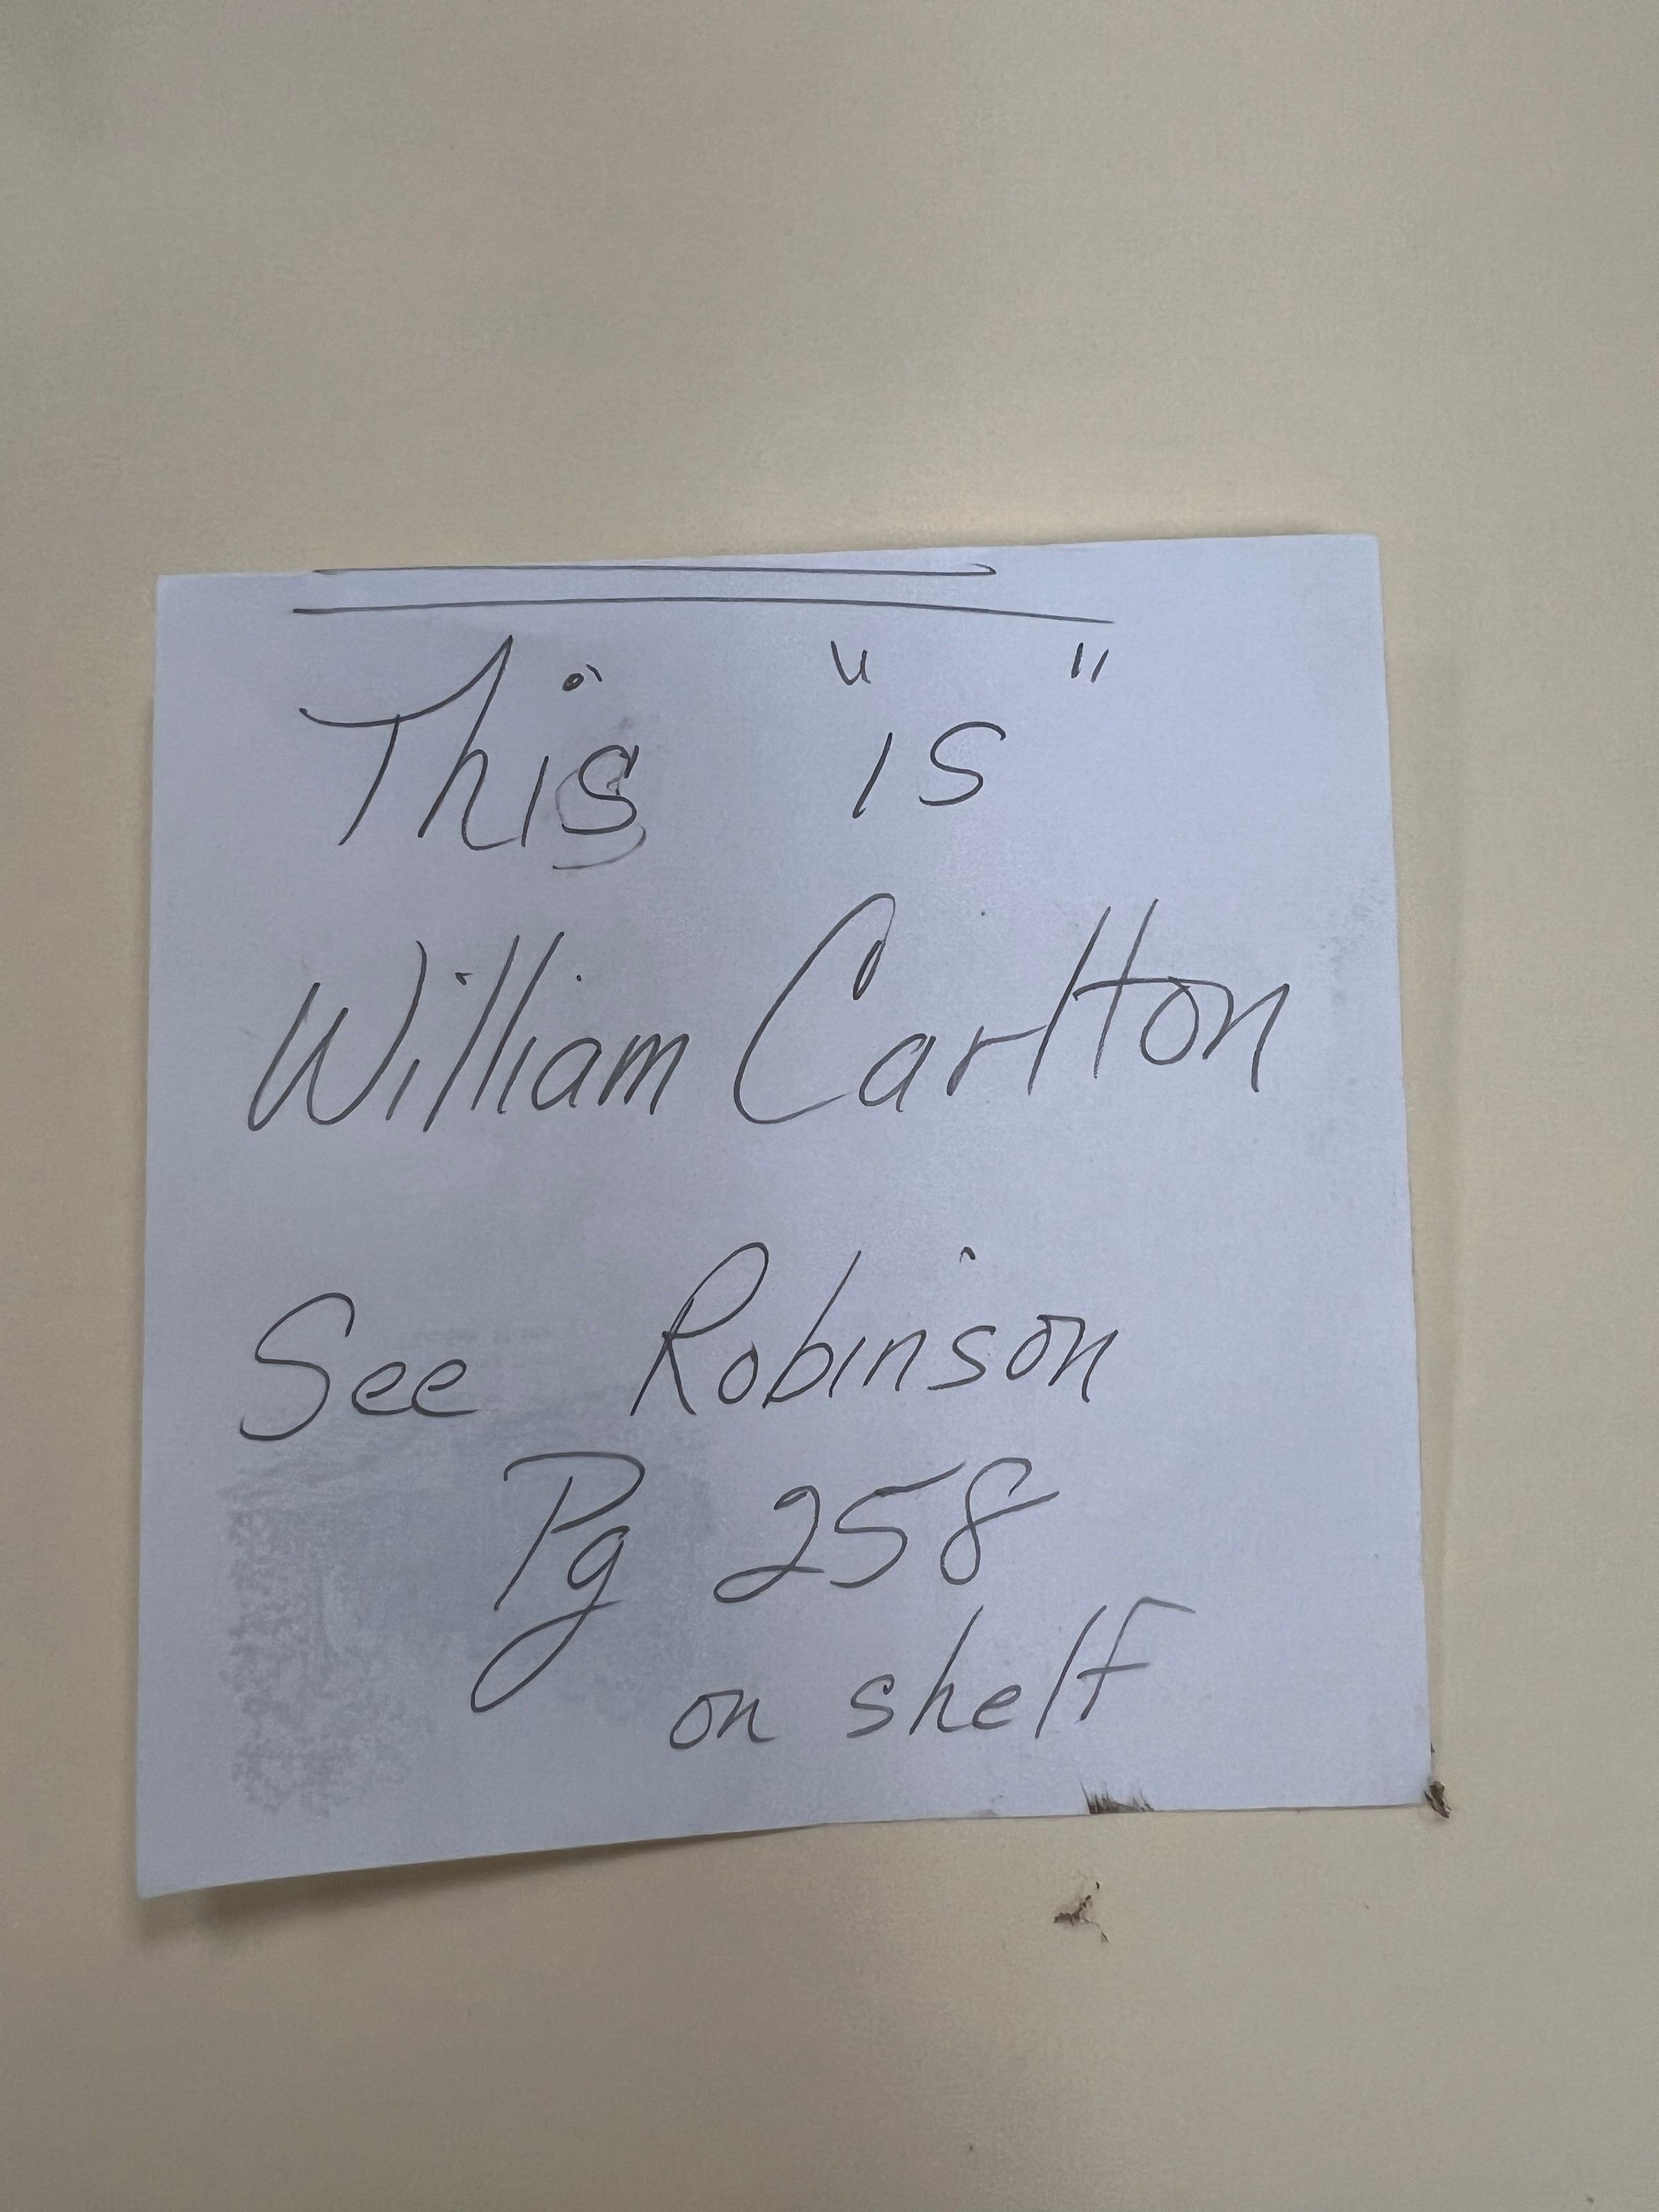 This "is"
William Carlton
See Robinson
Pg 258
on shelf